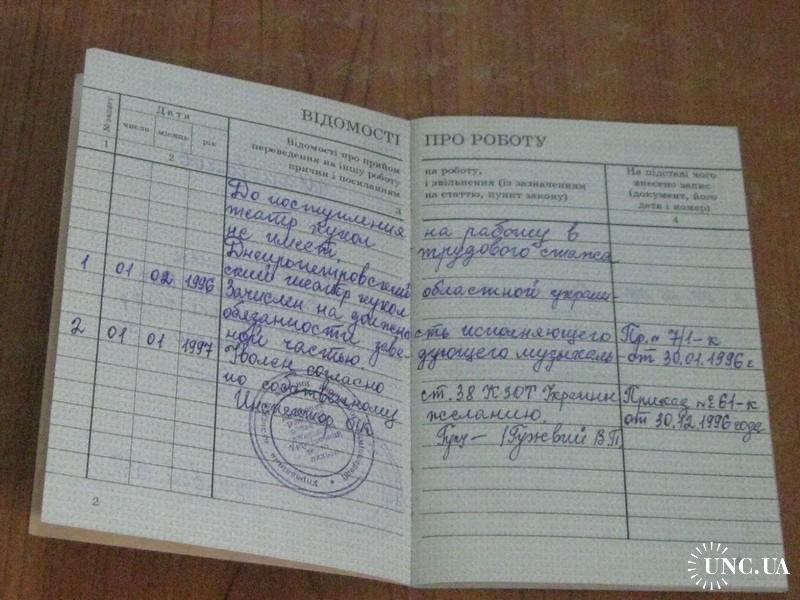 ВІДОМОСТІ ПРО РОБОТУ
№ запису
Дата
число місяць рік
Відомості про прийом на роботу,
переведення на іншу роботу і звільнення (із зазначенням
причин і посиланням на статтю, пункт закону)
На підставі чого
внесено запис
(документ, його
дата і номер)
1 2 3 4
До поступления на работу в
театр кукол трудового стажа
не имеет.
Днепропетровский областной украин-
1 01 02 1996 ский театр кукол
Зачислен на должно- сть исполняющего Пр. № 7/1-к
обязанности заве- дующего музыкаль от 30.01.1996г
2 01 01 1997 ной частью.
Уволен согласно ст. 38 КЗОТ Украины Приказ №261-к
по собственному желанию. от 30.12.1996 года
Инспектор ОК (Гужвий В.П.
2
UNC.UA